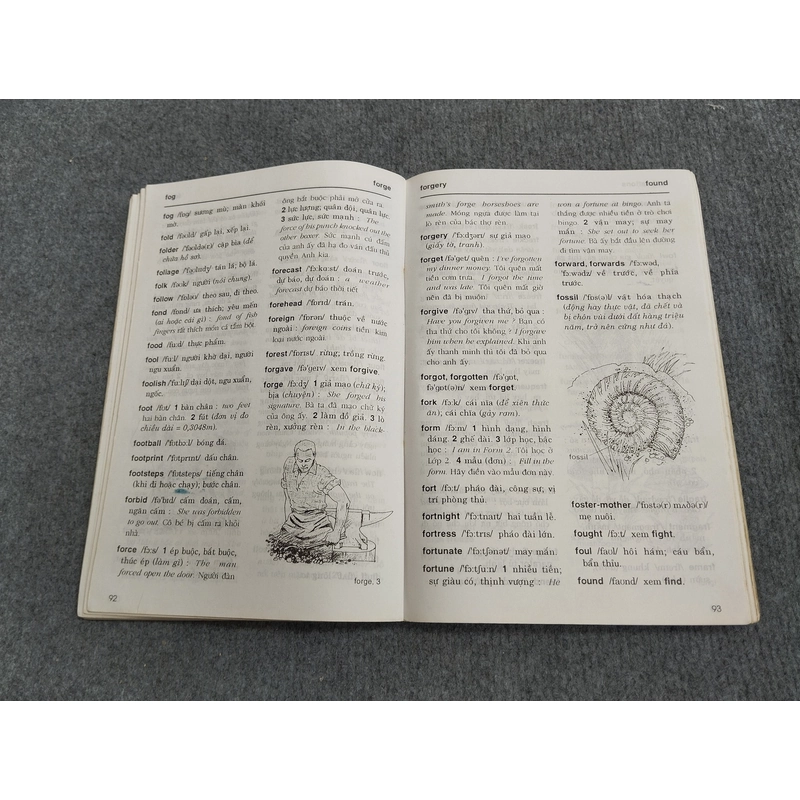 fog
forge
fog /fɒg/ sương mù; màn khói
mờ.
fold /fəʊld/ gấp lại, xếp lại.
folder /'fəʊldə(r)/ cặp bìa (để
chứa hồ sơ).
foliage /'fəʊlɪɪdʒ/ tán lá; bộ lá.
folk /fəʊk/ người (nói chung).
follow /'fɒləʊ/ theo sau, đi theo.
fond /fɒnd/ ưa thích; yêu mến
(ai hoặc cái gì) : fond of fish
fingers rất thích món cá tẩm bột.
food /fu:d/ thực phẩm.
fool /fu:l/ người khờ dại, người
ngu xuẩn.
foolish /'fu:lɪʃ/ dại dột, ngu xuẩn,
ngốc.
foot /fʊt/ 1 bàn chân : two feet
hai bàn chân. 2 fút (đơn vị đo
chiều dài = 0,3048m).
football /'fʊtbɔ:l/ bóng đá.
footprint /'fʊtprɪnt/ dấu chân.
footsteps /'fʊtsteps/ tiếng chân
(khi đi hoặc chạy); bước chân.
forbid /fə'bɪd/ cấm đoán, cấm,
ngăn cấm : She was forbidden
to go out. Cô bé bị cấm ra khỏi
nhà.
force /fɔ:s/ 1 ép buộc, bắt buộc,
thúc ép (làm gì) : The man
forced open the door. Người đàn
92
ông bắt buộc phải mở cửa ra.
2 lực lượng; quân đội, quân lực.
3 sức lực, sức mạnh : The
force of his punch knocked out the
other boxer. Sức mạnh cú đấm
của anh ấy đã hạ đo ván đấu thủ
quyền Anh kia.
forecast /'fɔ:kɑ:st/ đoán trước,
dự báo, dự đoán : a weather
forecast dự báo thời tiết.
forehead /'fɒrɪd/ trán.
foreign /'fɒrən/ thuộc về nước
ngoài : foreign coins tiền kim
loại nước ngoài.
forest /'fɒrɪst/ rừng; trồng rừng.
forgave /fə'geɪv/ xem forgive.
forge /fɔ:dʒ/ 1 giả mạo (chữ ký);
bịa (chuyện) : She forged his
signature. Bà ta đã mạo chữ ký
của ông ấy. 2 làm đồ giả. 3 lò
rèn, xưởng rèn : In the black-
forge, 3
forgery
found
smith's forge horseshoes are
made. Móng ngựa được làm tại
lò rèn của bác thợ rèn.
forgery /'fɔ:dʒərɪ/ sự giả mạo
(giấy tờ, tranh).
forget /fə'get/ quên : I've forgotten
my dinner money. Tôi quên mất
tiền cơm trưa. I forgot the time
and was late. Tôi quên mất giờ
nên đã bị muộn.
forgive /fə'gɪv/ tha thứ, bỏ qua :
Have you forgiven me ? Bạn có
tha thứ cho tôi không ? I forgave
him when he explained. Khi anh
ấy thanh minh thì tôi đã bỏ qua
cho anh ấy.
forgot, forgotten /fə'gɒt,
fə'gɒt(ə)n/ xem forget.
fork /fɔ:k/ cái nĩa (để xiên thức
ăn); cái chĩa (gảy rơm).
form /fɔ:m/ 1 hình dạng, hình
dáng. 2 ghế dài. 3 lớp học, bậc
học : I am in Form 2. Tôi học ở
Lớp 2. 4 mẫu (đơn) : Fill in the
form. Hãy điền vào mẫu đơn này.
fort /fɔ:t/ pháo đài, công sự; vị
trí phòng thủ.
fortnight /'fɔ:tnaɪt/ hai tuần lễ.
fortress /'fɔ:trɪs/ pháo đài lớn.
fortunate /'fɔ:tʃənət/ may mắn.
fortune /'fɔ:tʃu:n/ 1 nhiều tiền;
sự giàu có, thịnh vượng : He
won a fortune at bingo. Anh ta
thắng được nhiều tiền ở trò chơi
bingo. 2 vận may; sự may
mắn : She set out to seek her
fortune. Bà ấy bắt đầu lên đường
đi tìm vận may.
forward, forwards /'fɔ:wəd,
'fɔ:wədz/ về trước, về phía
trước.
fossil /'fɒs(ə)l/ vật hóa thạch
(động hay thực vật, đã chết và
bị chôn vùi dưới đất hàng triệu
năm, trở nên cứng như đá).
fossil
foster-mother /'fɒstə(r) mʌðə(r)/
mẹ nuôi.
fought /fɔ:t/ xem fight.
foul /faʊl/ hôi hám; cáu bẩn,
bẩn thỉu.
found /faʊnd/ xem find.
93